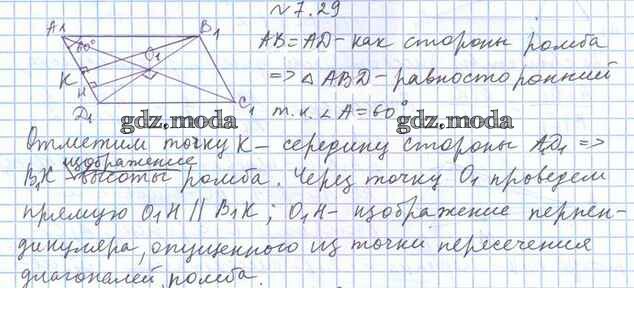 № 7.29
A₁ B₁
60° O₁
K
H
D₁ C₁
AB = AD - как стороны ромба
=> △ ABD - равносторонний
gdz.moda gdz.moda
т.к. ∠A = 60°
Отметим точку K - середину стороны A₁D₁ =>
изображение
B₁K - высоты ромба. Через точку O₁ проведем
прямую O₁H || B₁K; O₁H - изображение перпен-
gdz.moda gdz.moda
дикуляра, опущенного из точки пересечения
диагоналей ромба.